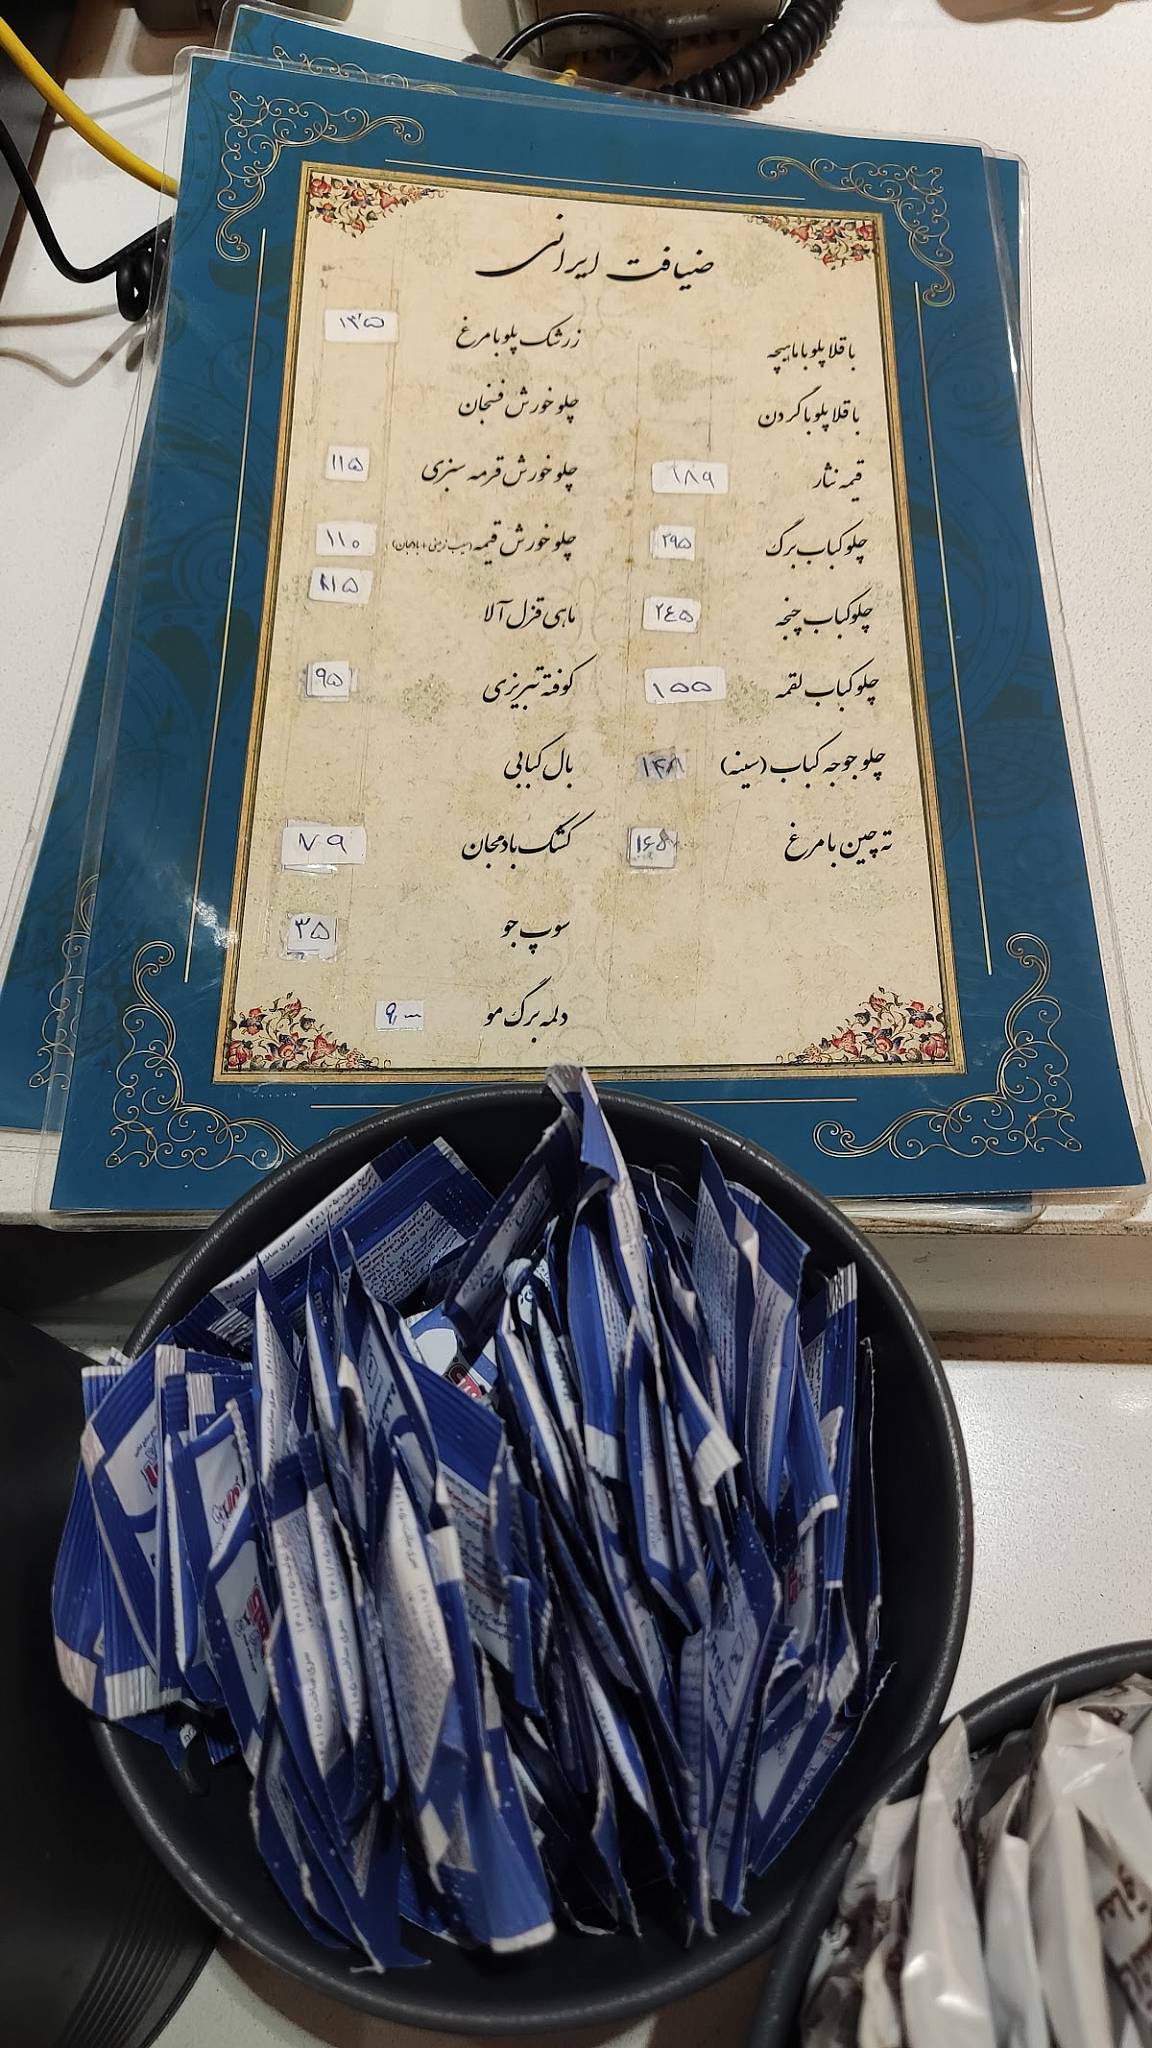 ضیافت ایرانی
باقلا پلو با ماهیچه
باقلا پلو با گردن
قیمه نثار ۱۸۹
چلو کباب برگ ۲۹۵
چلو کباب چنجه ۲۴۵
چلو کباب لقمه ۱۵۵
چلو جوجه کباب (سینه) ۱۴۸
ته چین با مرغ ۱۶۵
زرشک پلو با مرغ ۱۳۵
چلو خورش فسنجان
چلو خورش قرمه سبزی ۱۱۵
چلو خورش قیمه (سیب زمینی + بادمجان) ۱۱۰
ماهی قزل آلا ۱۱۵
کوفته تبریزی ۹۵
بال کبابی
کشک بادمجان ۷۹
سوپ جو ۳۵
دلمه برگ مو ۹,۰۰۰